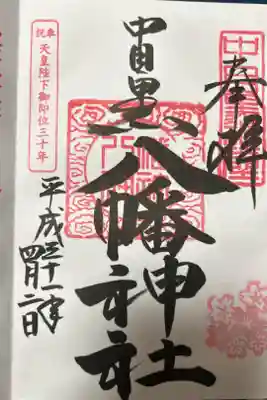 奉拝
中目黒
八幡神社
平成三十一年
四月二日
奉祝
天皇陛下御即位三十年